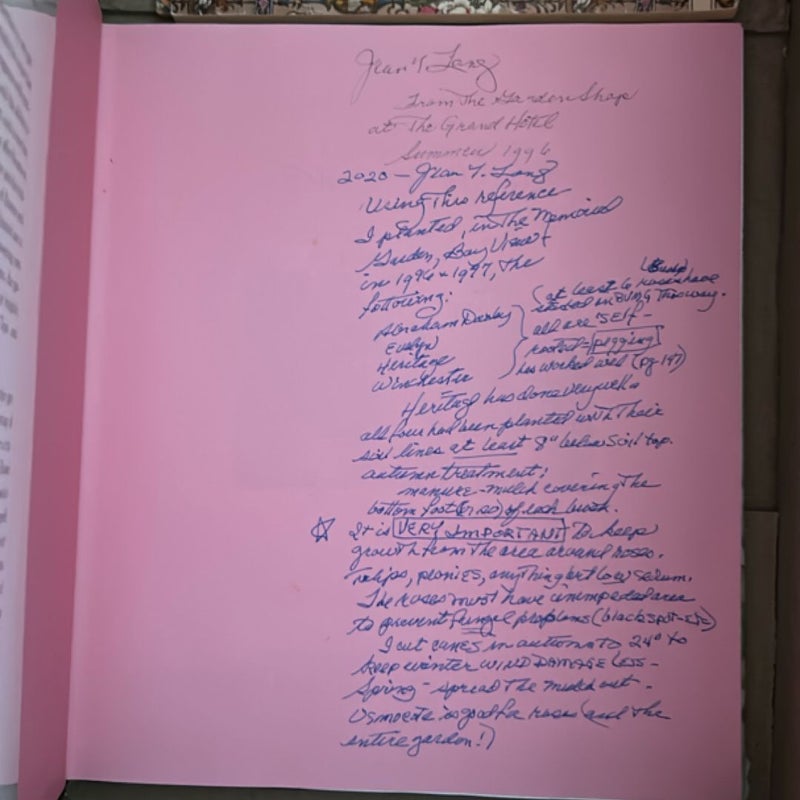 Jean Y. Long
From The Garden Shop
at The Grand Hotel
Summer 1996
2020 — Jean Y. Long
Using This reference
I planted, in The Memorial
Garden, Bay View
in 1996 & 1997, The
following:
Abraham Darby
Evelyn
Heritage
Winchester
at least 6 roses have
started in BVMG This way.
all are "SELF-
rooted = pegging
has worked well (pg 197)
Heritage has done very well &
all four had been planted with Their
soil lines at least 8" below soil top.
autumn treatment:
manure-mulch covering The
bottom foot (or so) of each bush.
☆ It is VERY IMPORTANT To keep
growth from The area around roses.
Tulips, peonies, anything but low sedum.
The roses must have unimpeded area
to prevent fungel problems (blackspot-etc)
I cut canes in autumn TO 24" to
keep winter WIND DAMAGE LESS-
Spring - spread The mulch out.
Osmocote is good for roses (and The
entire garden!)